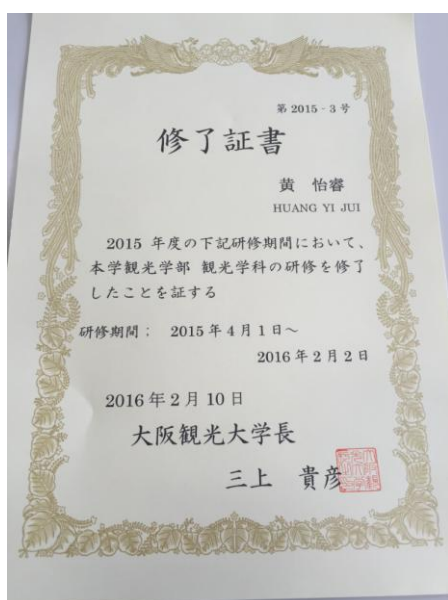 第 2015 - 3 号
修了証書
黄 怡睿
HUANG YI JUI
2015 年度の下記研修期間において、
本学観光学部 観光学科の研修を修了
したことを証する
研修期間： 2015 年 4 月 1 日～
2016 年 2 月 2 日
2016 年 2 月 10 日
大阪観光大学長
三上 貴彦